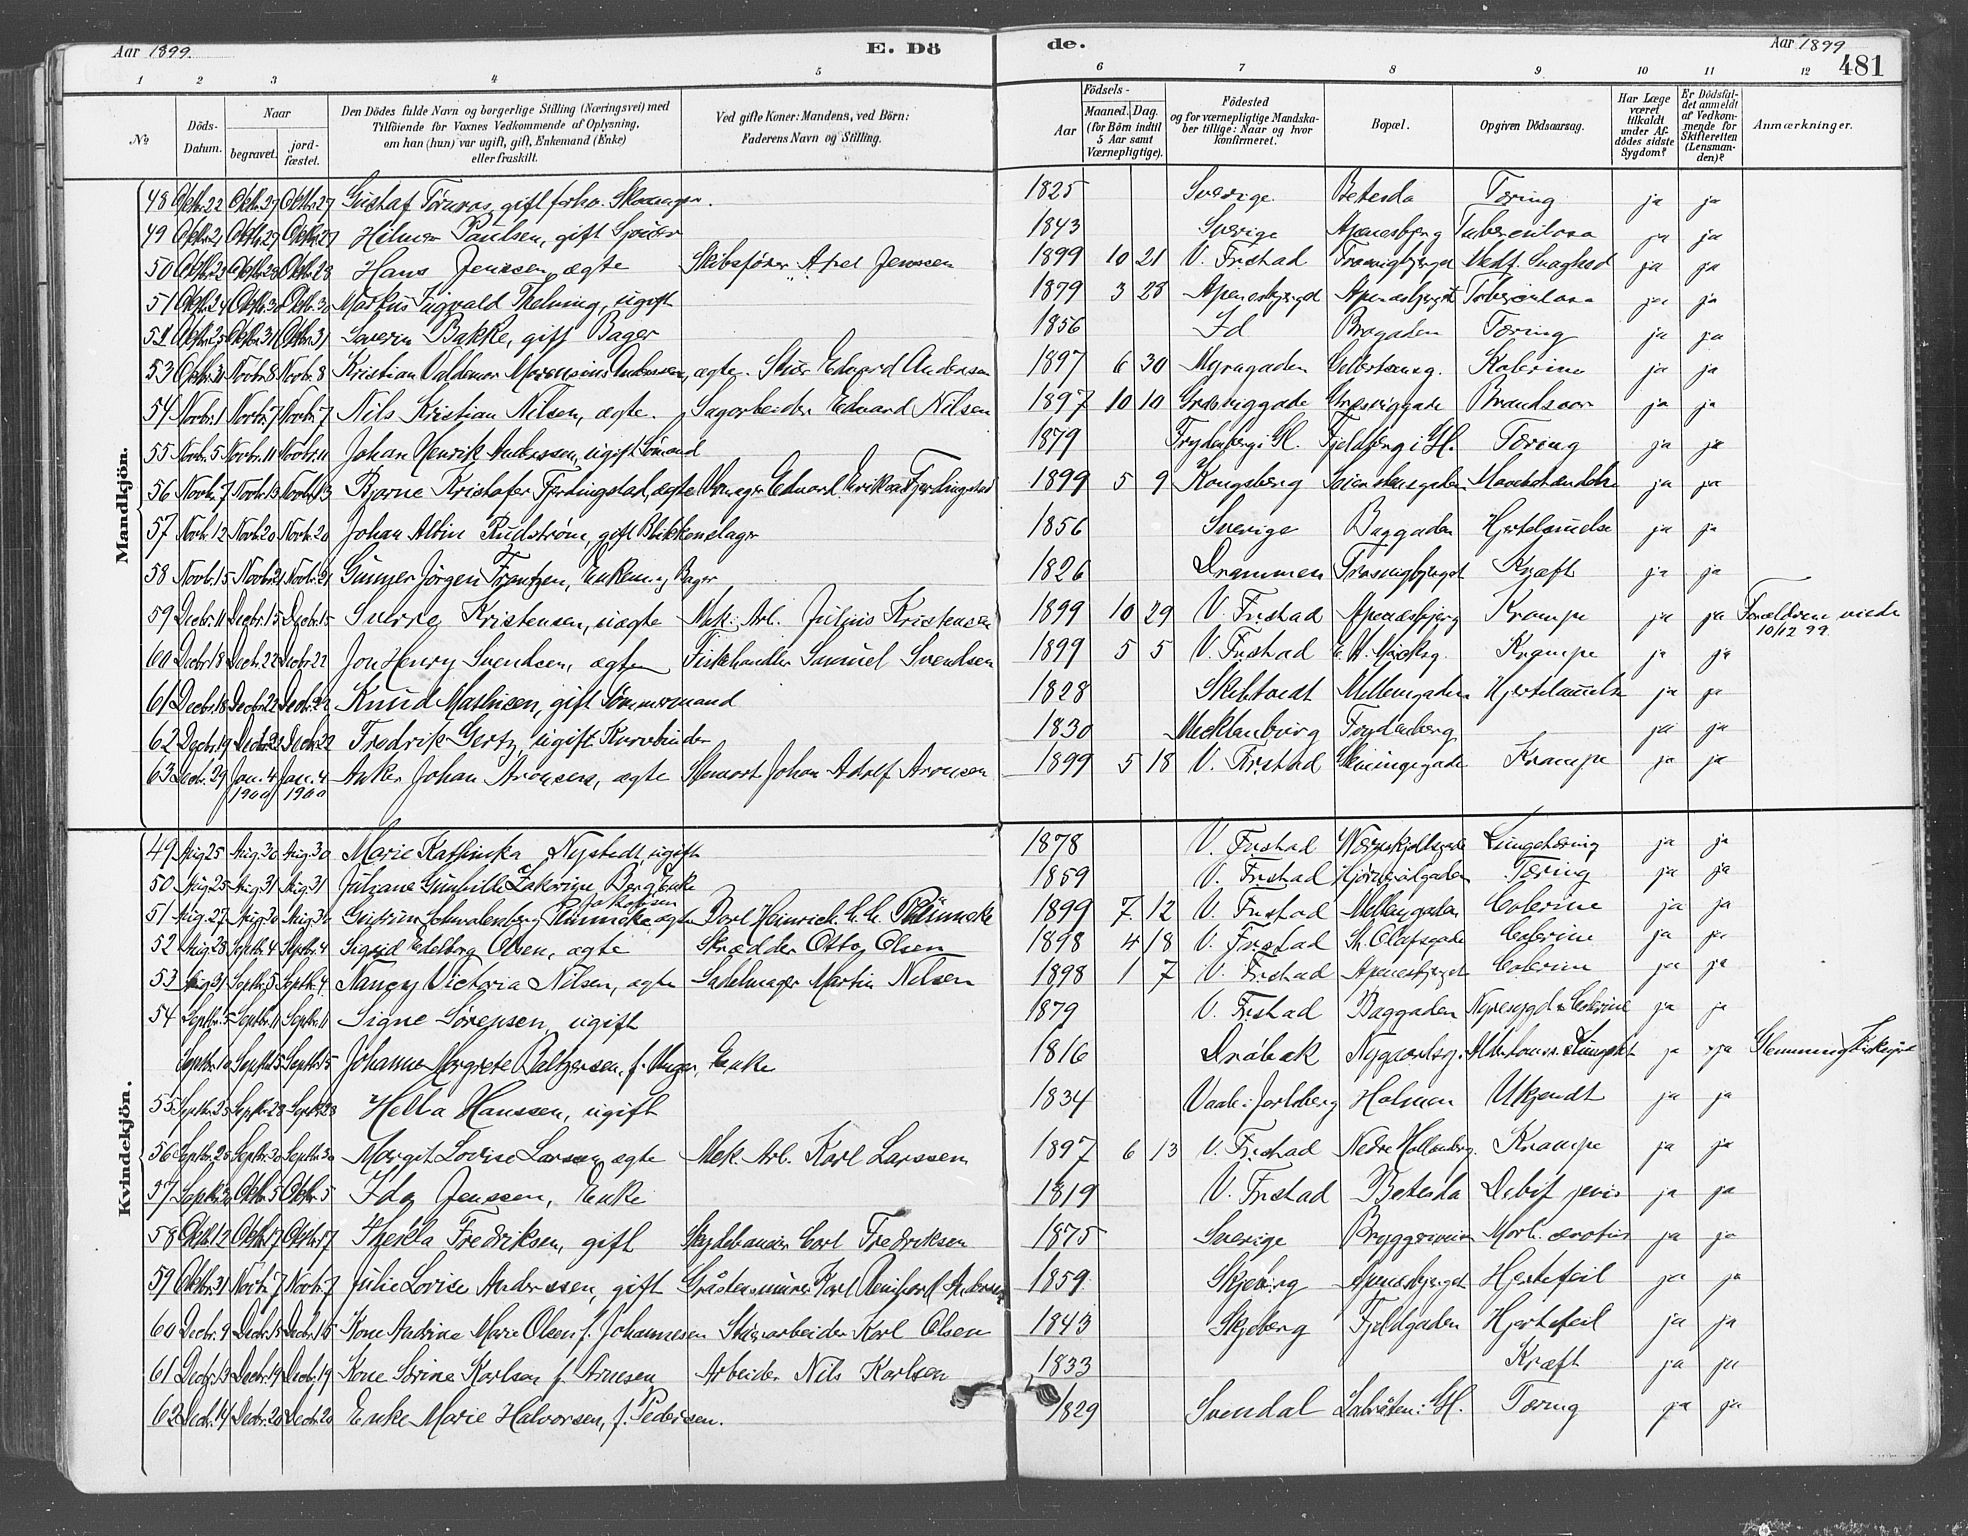 Aar 1899. E. Dö de. Aar 1899 481
1 2 3 4 5 6 7 8 9 10 11 12
No Döds-Datum. Naar begravet. jord-fæstet. Den Dödes fulde Navn og borgerlige Stilling (Næringsvei) med Tilföiende for Voxnes Vedkommende af Oplysning, om han (hun) var ugift, gift, Enkemand (Enke) eller fraskilt. Ved gifte Koner: Mandens, ved Börn: Faderens Navn og Stilling. Födsels- Aar Maaned. Dag. (for Börn indtil 5 Aar samt Værnepligtige). Födested og for værnepligtige Mandska-ber tillige: Naar og hvor konfirmeret. Bopæl. Opgiven Dödsaarsag. Har Læge været tilkaldt under Af-dödes sidste Sygdom? Er Dödsfal-det anmeldt af Vedkom-mende for Skifteretten (Lensman-den)? Anmærkninger.
Mandkjön.
48 Oktbr.22 Oktbr.27 Oktbr.27 Gustaf Törnros, gift 1825 Sverige Betesda Tæring ja ja
49 Oktbr.21 Oktbr.27 Oktbr.27 Hilmer Paulsen, gift 1843 Sverige Apenesbjerg Tuberculose ja ja
50 Oktbr.23 Oktbr.28 Oktbr.28 Hans Jenssen, ægte Skibsfører Axel Jenssen 1899 10 21 V. Frstad Trosvigbjerget Medf. Svaghed ja ja
51 Oktbr.24 Oktbr.30 Oktbr.30 Markus Sigvald Thelning, ugift 1879 3 28 Apenesbjerget Apenesbjerget Tuberculose ja ja
52 Oktbr.25 Oktbr.31 Oktbr.31 Severin Bakke, gift Bager 1856 Id Brogaden Tæring ja ja
53 Oktbr.31 Novbr.8 Novbr.8 Kristian Valdemar Anderssen, ægte. Edvard Andersen 1897 6 30 Myragaden Kolerine ja ja
54 Novbr.1 Novbr.7 Novbr.7 Nils Kristian Nilsen, ægte. Sagarbeider Edvard Nilsen 1897 10 10 Gresviggade Gresviggade Brandsaar ja ja
55 Novbr.5 Novbr.11 Novbr.11 Johan Henrik Anderssen, ugift Sømand 1879 Frydenberg i Gl. Fjeldberg i Gl. Tæring ja ja
56 Novbr.7 Novbr.13 Novbr.13 Bjarne Kristofer Fjerdingstad, ægte Edvard Eriksen Fjerdingstad 1899 5 9 Kongsberg ja ja
57 Novbr.12 Novbr.20 Novbr.20 Johan Albin Rudstrøm, gift Blikkenslager 1856 Sverige Baggaden Hjertelammelse ja ja
58 Novbr.15 Novbr.21 Novbr.21 Gunner Jörgen Frantzen, Enkem. Bager 1826 Drammen Trosvigbjerget Kræft ja ja
59 Decbr.11 Decbr.15 Decbr.15 Sverre Kristensen, uægte Mek. Arb. Julius Kristensen 1899 10 29 V. Frstad Apenesbjerg Krampe ja ja Forældrene viede
10/12 99
60 Decbr.18 Decbr.22 Decbr.22 Jon Henry Svendsen, ægte Fiskehandler Samuel Svendsen 1899 5 5 V. Frstad Krampe ja ja
61 Decbr.18 Decbr.22 Decbr.22 Knud Mathisen, gift Tømmermand 1828 Skibtvedt Mellemgaden Hjertelammelse ja ja
62 Decbr.19 Decbr.22 Decbr.22 Fredrik Gertz, ugift Kurvbinder 1830 Mecklenburg Frydenberg ja ja
63 Decbr.29 Jan.4 1900 Jan.4 1900 Anker Johan Aronsen, ægte Johan Adolf Aronsen 1899 5 18 V. Frstad Krampe ja ja
Kvindekjön.
49 Aug.25 Aug.30 Aug.30 Marie Kathinka Nystedt, ugift 1878 V. Frstad Lungetæring ja ja
50 Aug.25 Aug.31 Aug.31 Juliane Gunhilde Zakarine Berg, Enke 1859 V. Frstad Tæring ja ja
51 Aug.27 Aug.30 Aug.30 Schwalenberg Jakobsen ægte Heinrich 1899 7 12 V. Frstad Mellemgaden Colerine ja ja
52 Aug.28 Septbr.4 Septbr.4 Sigrid Edelborg Olsen, ægte Skrædder Otto Olsen 1898 4 18 V. Frstad St. Olafsgade Colerine ja ja
53 Aug.31 Septbr.5 Septbr.4 Nancy Victoria Nilsen, ægte Sadelmager Martin Nilsen 1898 1 7 V. Frstad Apenesbjerget Colerine ja ja
54 Septbr.5 Septbr.11 Septbr.11 Signe Sørensen, ugift 1879 V. Frstad Baggaden Nyresygd. & Colerine ja ja
Septbr.10 Septbr.15 Septbr.15 Johanne Margrete Baltzersen, f. Unger, Enke 1816 Drøbak Nygaardsg. ja ja Glemming
55 Septbr.23 Septbr.28 Septbr.28 Hella Hanssen, ugift 1834 Vaale i Jarlsberg Holmen Ukjendt ja ja
56 Septbr.25 Septbr.30 Septbr.30 Margit Lovise Larsen, ægte Mek. Arb. Karl Larssen 1897 6 13 V. Frstad Nedre Hollenberg. Krampe ja ja
57 Septbr.30 Oktbr.5 Oktbr.5 Ida Jenssen, Enke 1819 V. Frstad Betesda ja ja
58 Oktbr.12 Oktbr.17 Oktbr.17 Thekla Fredriksen, gift Carl Fredriksen 1875 Sverige Bryggeriveien ja ja
59 Oktbr.31 Novbr.7 Novbr.7 Julie Lovise Anderssen, gift Karl Reinhard Andersen 1859 Skjeberg Apenesbjerget Hjertefeil ja ja
60 Decbr.9 Decbr.15 Decbr.15 Kone Andrine Marie Olsen f. Johannesen Karl Olsen 1843 Skjeberg Fjeldgaden Hjertefeil ja ja
61 Decbr.13 Decbr.19 Decbr.19 Kone Sørine Karlsen f. Arnesen Arbeider Nils Karlsen 1833 Kræft ja ja
62 Decbr.14 Decbr.20 Decbr.20 Enke Marie Halvorsen, f. Pedersen. 1829 Svendal Tæring ja ja